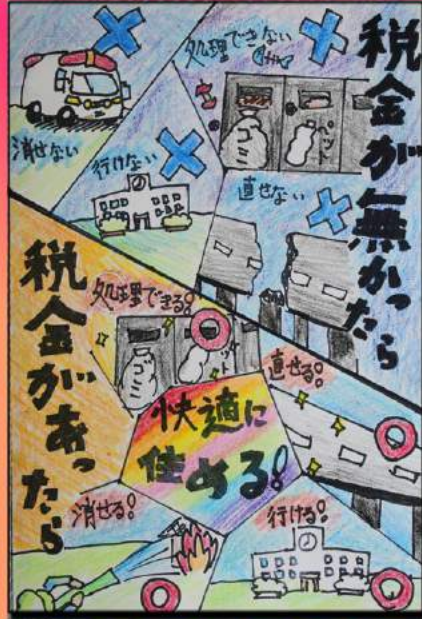 税金が無かったら
処理できない
ゴミ
ペット
消せない
行けない
直せない
税金があったら
処理できる!
ゴミ
ット
直せる!
快適に
住める!
消せる!
行ける!